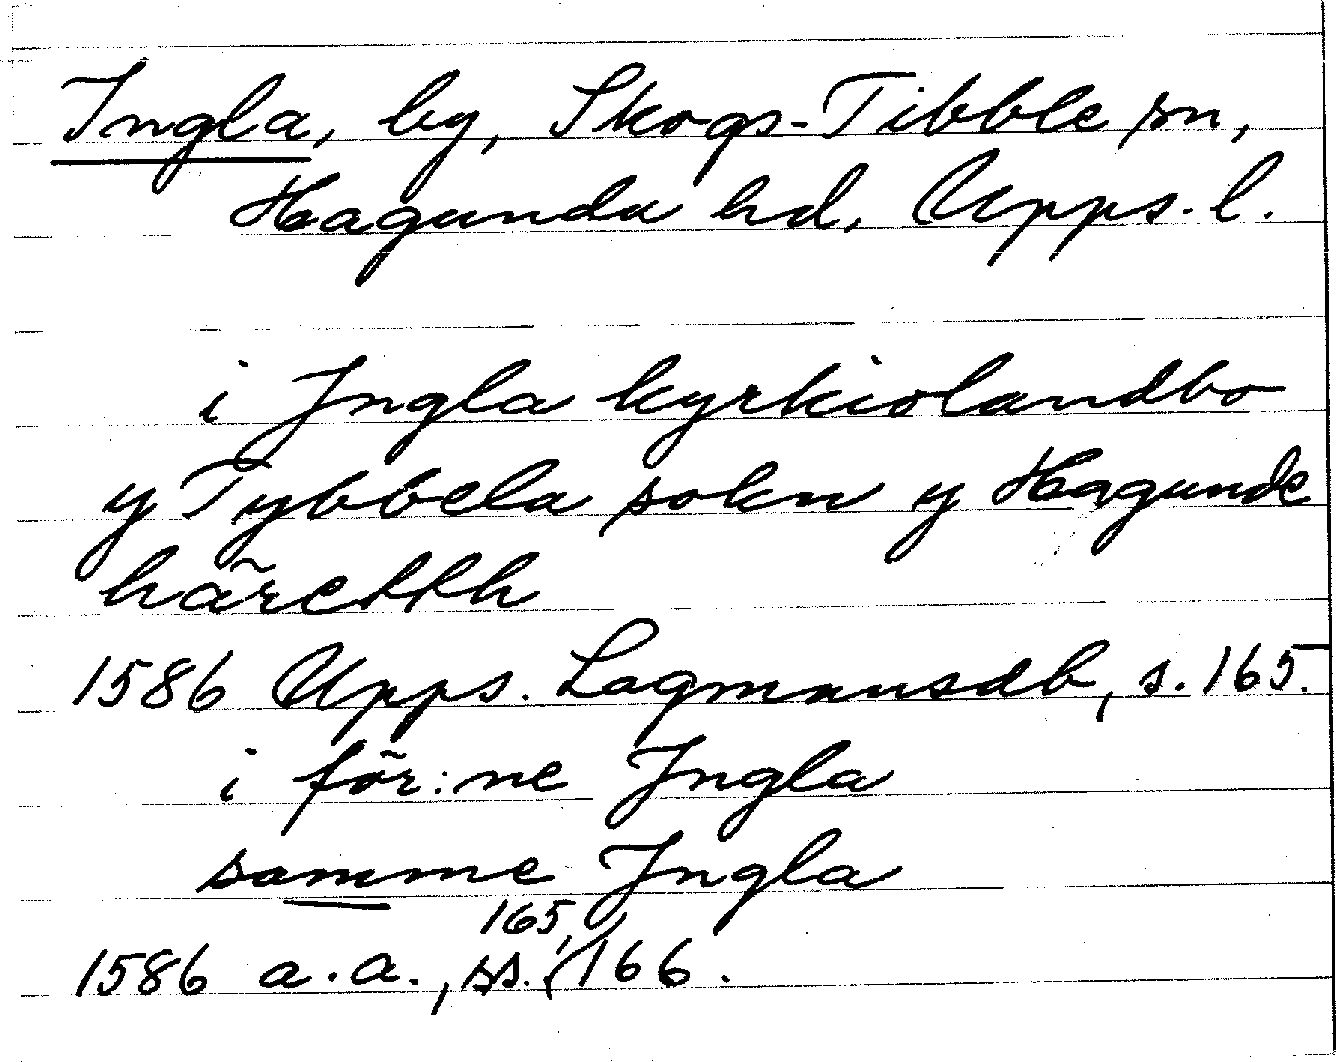 Ingla, by, Skogs-Tibble sn,
Hagunda hd, Upps. l.
i Jngla kyrkiolandbo
y Tybbela sokn y Hagunde
hãretthh
1586 Upps. Lagmansdb, s. 165.
i fõr:ne Jngla
samme Jngla
165,
1586 a.a., ss. 166.